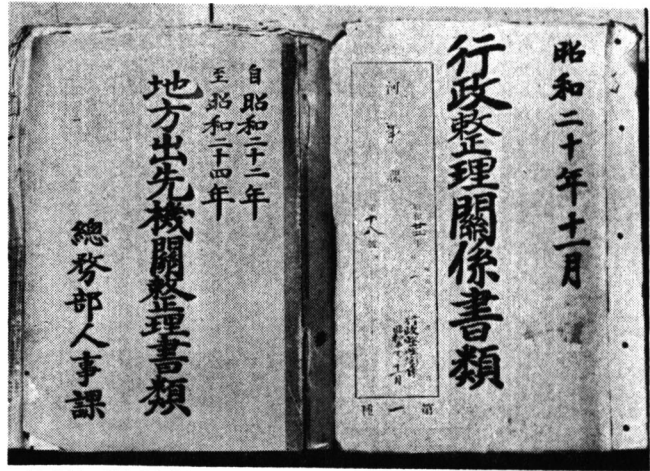 昭和二十年十一月
行政整理關係書類
第一種
自昭和二十二年
至昭和二十四年
地方出先機關整理書類
總務部人事課